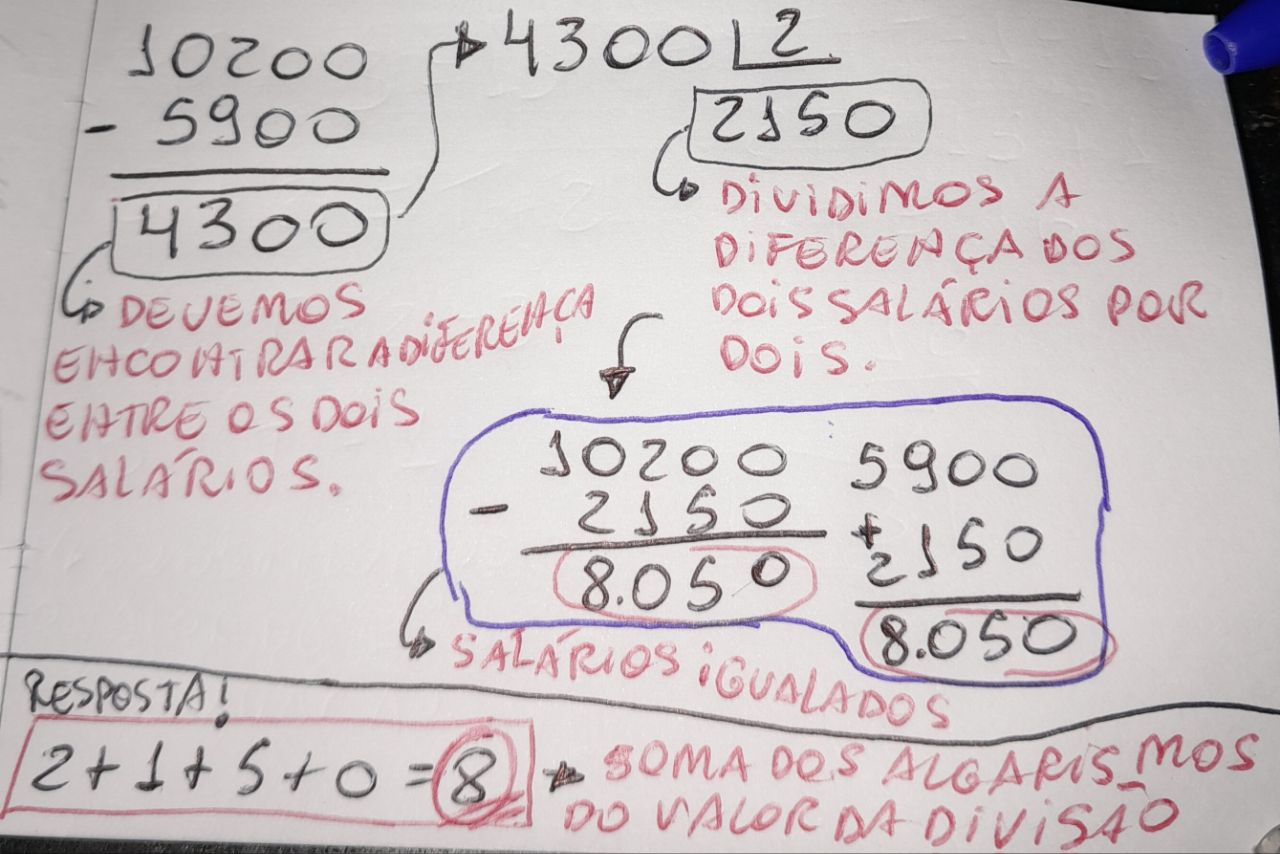 10200
- 5900
4300
DEVEMOS
ENCONTRAR A DIFERENÇA
ENTRE OS DOIS
SALÁRIOS.
4300 2
2150
DIVIDIMOS A
DIFERENÇA DOS
DOIS SALÁRIOS POR
DOIS.
10200
- 2150
8.050
5900
+ 2150
8.050
SALÁRIOS IGUALADOS
RESPOSTA!
2+1+5+0=8
SOMA DOS ALGARIS_MOS
DO VALOR DA DIVISÃO